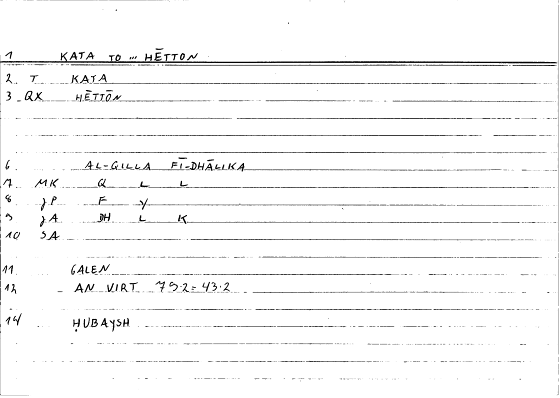 1 KATA TO ... HĒTTON
2 T KATA
3 QX HĒTTŌN
6 AL-QILLA FĪ-DHĀLIKA
7 MK Q L L
8 JP F Y
9 JA DH L K
10 SA
11 GALEN
12 AN VIRT 79.2 = 43.2
14 ḤUBAYSH